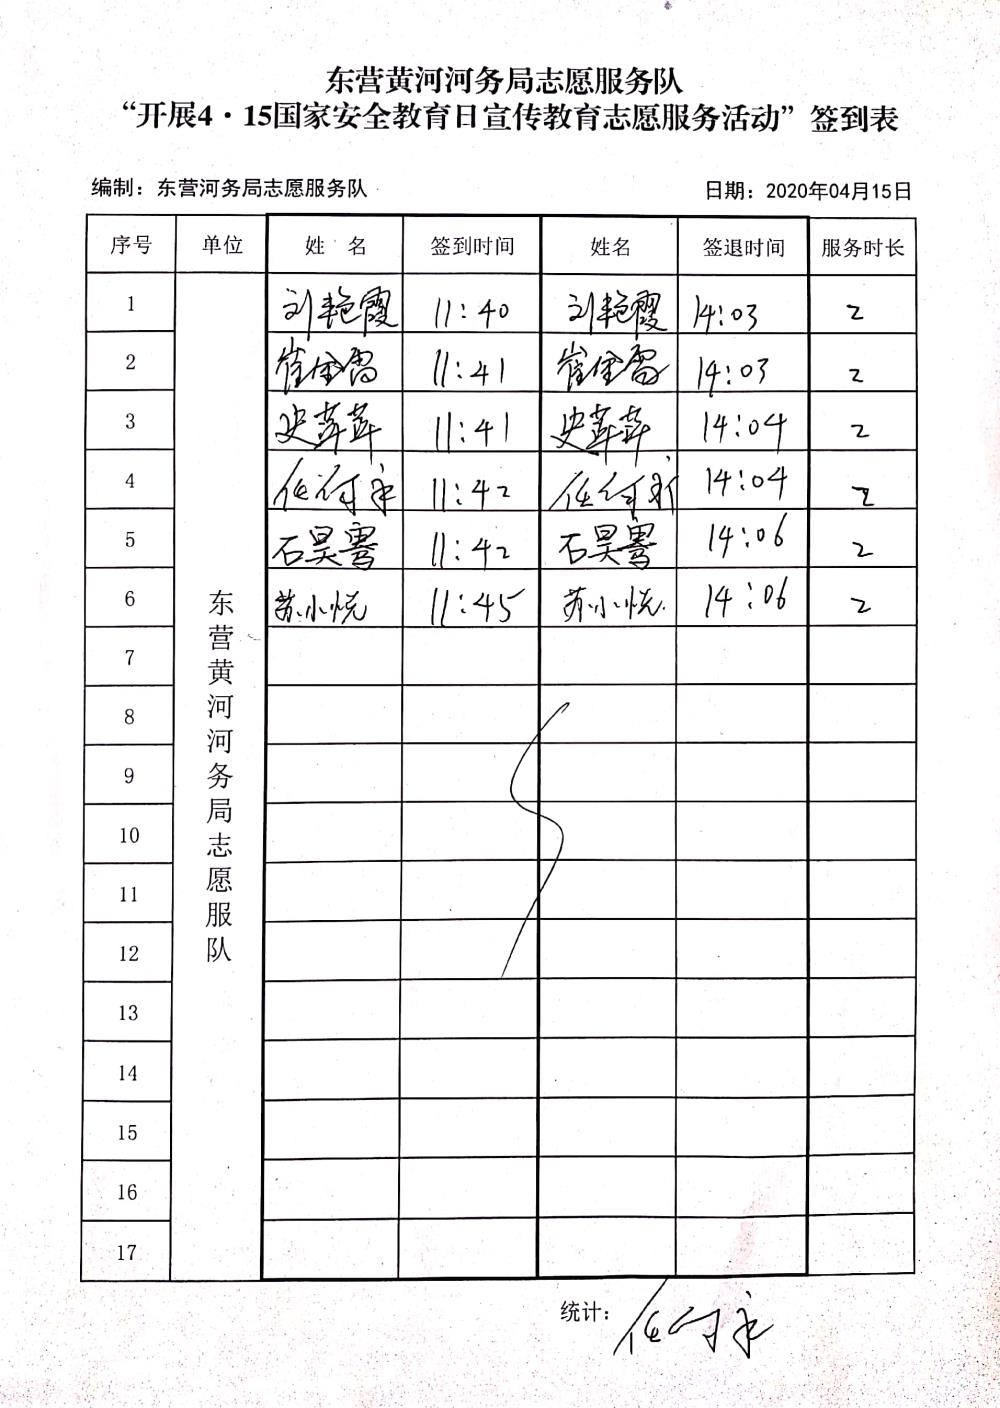 东营黄河河务局志愿服务队
“开展4·15国家安全教育日宣传教育志愿服务活动”签到表
编制：东营河务局志愿服务队 日期：2020年04月15日
序号 单位 姓 名 签到时间 姓名 签退时间 服务时长
东营黄河河务局志愿服队
1 刘艳霞 11:40 刘艳霞 14:03 2
2 崔佳 11:41 崔佳 14:03 2
3 史萍萍 11:41 史萍萍 14:04 2
4 任 11:42 任 14:04 2
5 石昊 11:42 石昊 14:06 2
6 苏小悦 11:45 苏小悦 14:06 2
7
8
9
10
11
12
13
14
15
16
17
统计：任